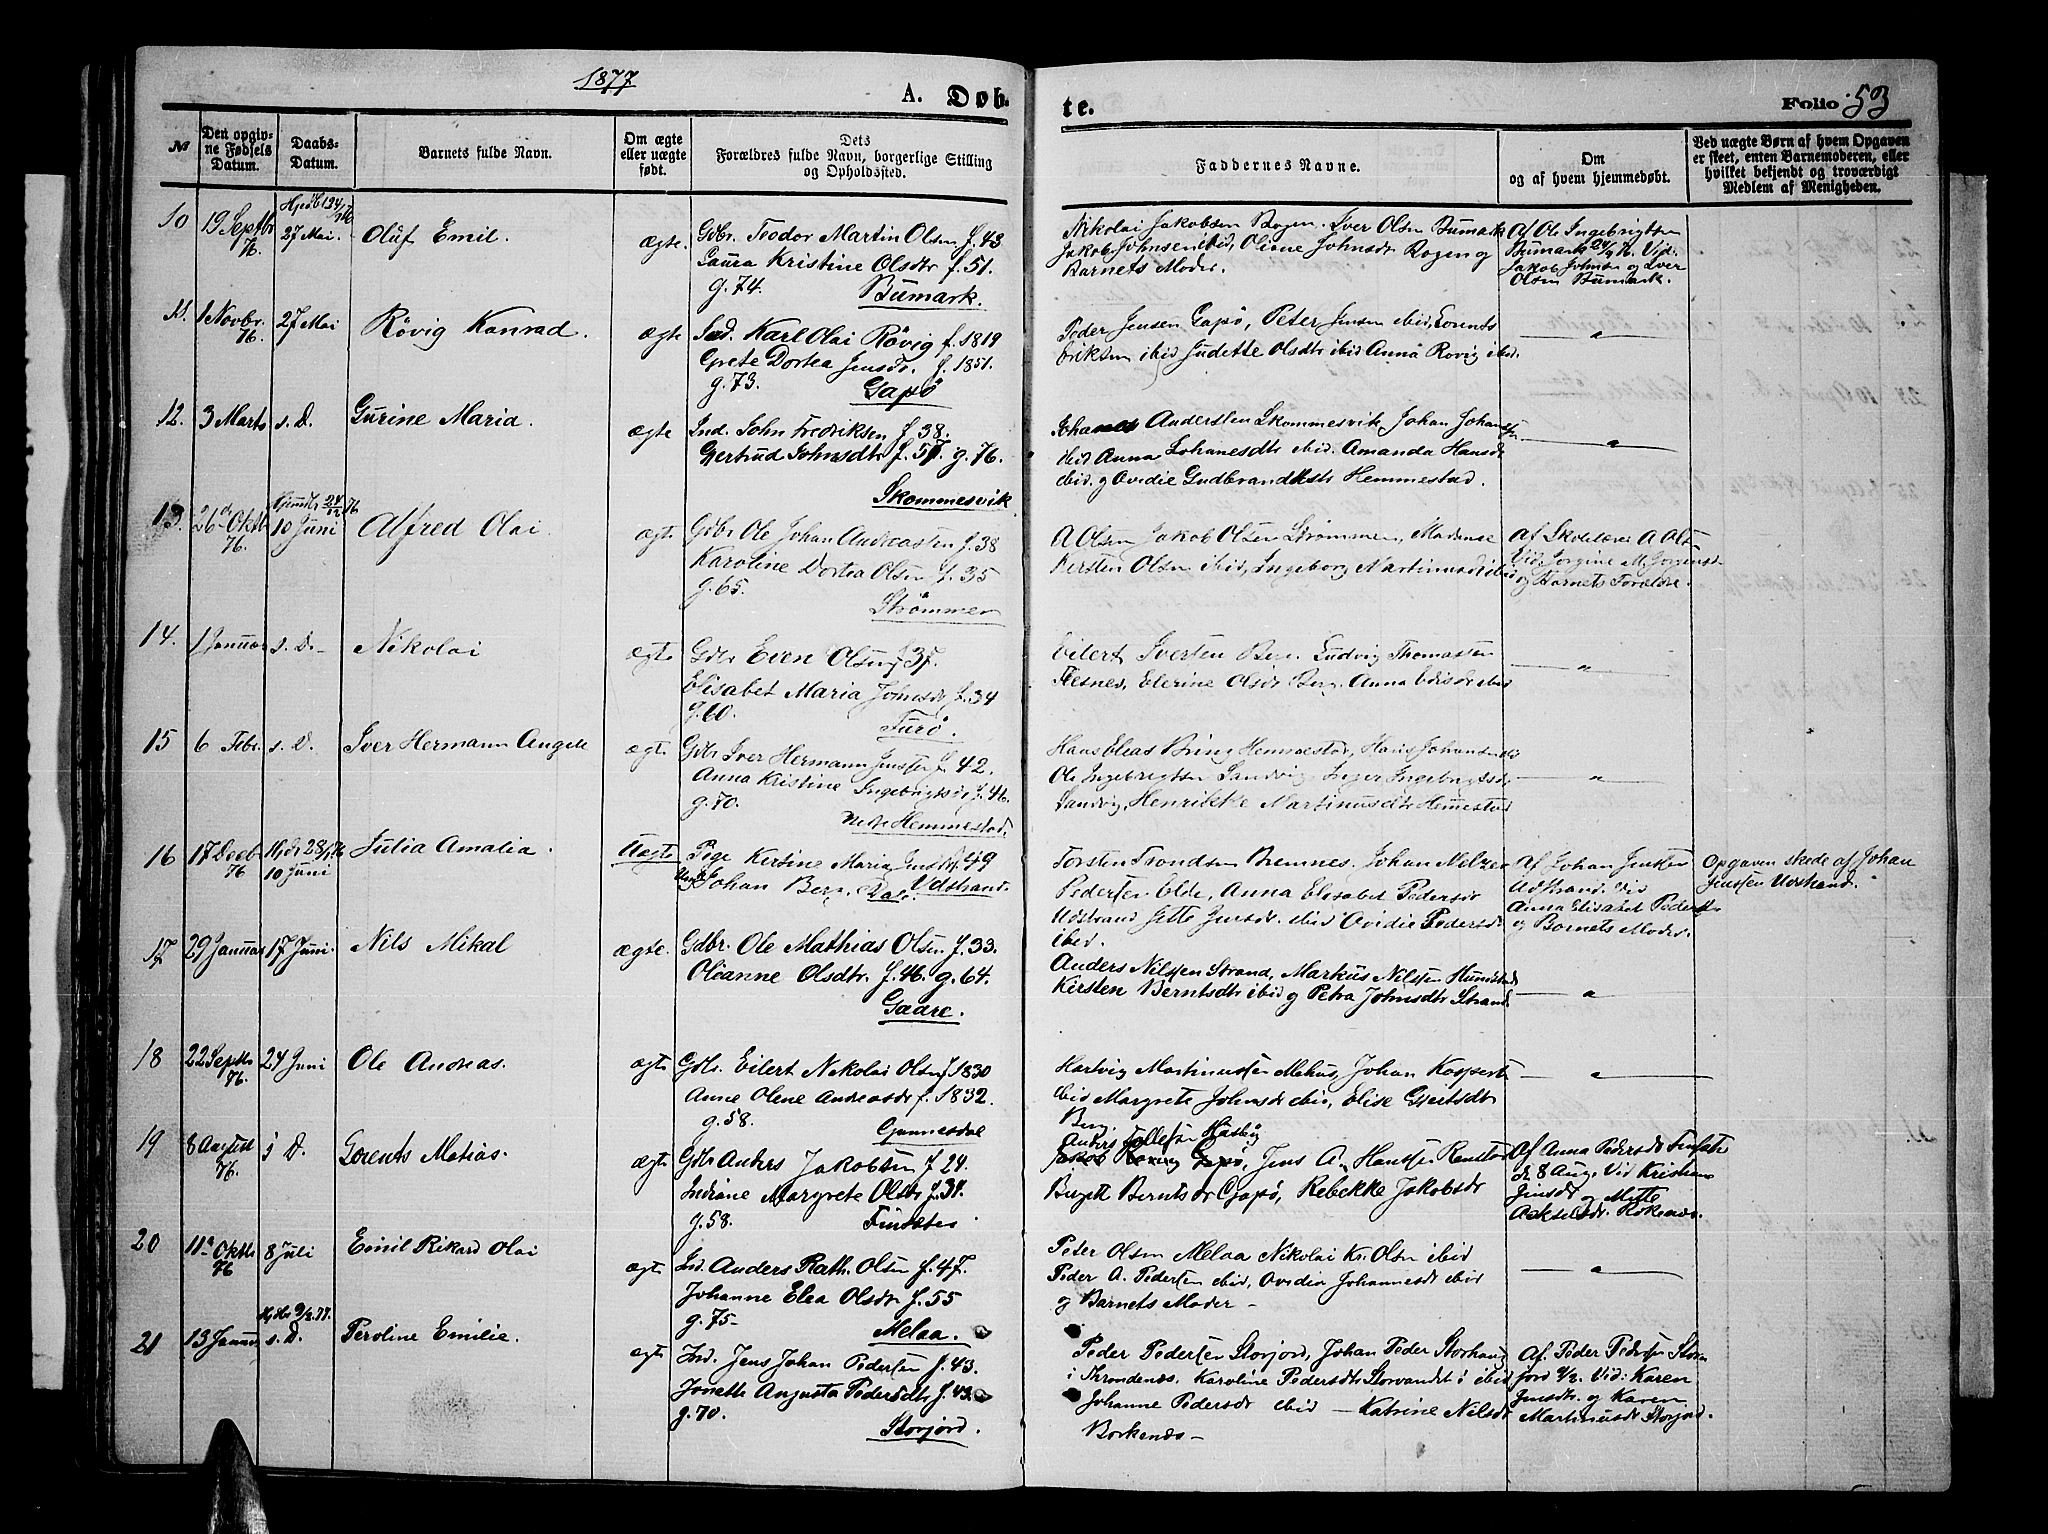 1877
A. Døb-
te.
Folio 53
№
Den opgiv-
ne Fødsels
Datum.
Daabs-
Datum.
Barnets fulde Navn.
Om ægte
eller uægte
født.
Dets
Forældres fulde Navn, borgerlige Stilling
og Opholdssted.
Faddernes Navne.
Om
og af hvem hjemmedøbt.
Ved uægte Børn af hvem Opgaven
er skeet, enten Barnemoderen, eller
hvilket bekjendt og troværdigt
Medlem af Menigheden.
10
19 Septbr
76.
27 Mai.
Oluf Emil.
ægte
Gdbr. Teodor Martin Olsen f. 43
Laura Kristine Olsdtr f. 51.
g. 74. Bumark.
Nikolai Jakobsen Bogen. Iver Olsen Bumark
Jakob Johnsen ibid, Oliane Johnsdr Bogen og
Barnets Moder.
Af Ole Ingebrigtsen
Bumark 24/9 76. Vid:
Jakob Johnsen og Iver
Olsen Bumark.
11.
1 Novbr.
76.
27 Mai
Røvig Konrad.
ægte
Ind. Karl Olai Røvig f. 1819
Grete Dortea Jensdr. f. 1851.
g. 73. Gapø
Peder Jensen Gapø, Peter Jensen ibid, Lorents
Eriksen ibid Judette Olsdtr ibid Anna Rovig ibid.
"
12.
3 Marts
s. D.
Gurine Maria.
ægte
Ind. John Fredriksen f. 38.
Gertrud Johnsdtr f. 57. g. 76.
Skommesvik
Johannes Anderssen Skommesvik, Johan Johanssen
ibid Anna Johanesdtr ibid. Amanda Hansdr
ibid. og Ovidie Gudbrandsdtr Hemmestad.
"
13.
26 d Oktbr
76.
10 Juni
Alfred Olai
ægte
Gdbr Ole Johan Andreassen f. 38
Karoline Dortea Olsen f. 35
g. 65.
Strømmen
A Olsen, Jakob Olsen Strømmen, Madamse
Kersten Olsen ibid, Ingeborg Martinusdr ibid
Af Skolelærer A Olsen
ibid, Jorgine M. Jorgensdr
og Barnets Forældre.
14.
1 Januar
s. D.
Nikolai
ægte
Gdbr Even Olsen f 37.
Elisabet Maria Johnsdr f. 34
g. 60.
Furø.
Eilert Iversen Berg. Ludvig Thomassen
Flesnes, Elerine Olsdr Berg. Anna ibid
"
15
6 Febr.
s. D.
Iver Hermann Angel
ægte
Gdbr Iver Hermann Jenssen f. 42.
Anna Kristine Ingebrigtsdr f. 46.
g. 70.
Nedre Hemmestad.
Hans Elias Bring Hemmestad, Hans Johansen ibid
Ole Ingebrigtsen Sandvig, Inger Ingebrigtsdr
Sandvig, Henrikke Martinusdtr Hemmestad
"
16
17 Decbr
76
10 Juni
Julia Amalia.
Uægte
Pige Kirstine Maria Jensdr f. 49
Udstrand.
Johan Berg. Dal.
Torsten Trondsen Bremnes. Johan Meltzer
Pedersen Elde, Anna Elisabet Pedersdr
Udstrand Jette Jensdr. ibid Ovidie Pedersdr
ibid.
Af Johan Jenssen
Udstrand. Vid
Anna Elisabet Pedersdr
og Barnets Moder.
Opgaven skede af Johan
Jenssen Udstrand.
17
29 Januar
17 Juni.
Nils Mikal
ægte.
Gdbr. Ole Mathias Olsen f. 33.
Olianne Olsdtr. f. 46. g. 64.
Gaare.
Anders Nilssen Strand, Markus Nilssen Hundstad
Kirsten Berntsdtr ibid og Petra Johnsdtr Strand.
"
18
22 Septbr
76.
24 Juni
Ole Andreas.
ægte
Gdbr. Eilert Nikolai Olsen f 1830
Anne Olene Andreasdr f. 1832.
g. 58.
Gunnesdal
Hartvig Martinussen Mehus, Johan Kaspersen
ibid Margrete Johnsdr ibid, Elise Gjertsdtr
Berg.
"
19
8 August
76.
s D.
Lorents Matias.
ægte
Gdbr Anders Jakobsen f 24.
Indiane Margrete Olsdtr f. 34.
g. 58.
Finsæter
Anders Tollefsen Husby
Jakob Røvig Gapø, Jens A. Hanssen
Birgitte Berntsdr Gapø, Rebekke Jakobsdr
Af Anna Pedersdr Finsæter
d. 8 Aug. Vid Kristiane
Jensdr og Mette
Akselsdr. Rokenes.
20
11 Oktbr
76
8 Juli
Emil Rikard Olai
ægte
Ind. Anders Rath. Olsen f. 47.
Johanne Elea Olsdtr f. 55
g. 75
Melaa.
Peter Olsen Melaa Nikolai Kr. Olsen ibid
Peder A. Pedersen ibid, Ovidia Johannesdr ibid
og Barnets Moder
"
21
13 Januar
s. D.
Peroline Emilie.
ægte
Ind. Jens Johan Pedersen f. 43.
Jonette Augusta Pedersdtr f. 43.
g. 70.
Storjord.
Peder Pedersen Storjord, Johan Peder Storhaug
i Trondenæs. Karoline Pedersdtr Storvandet i ibid
Johanne Pedersdr ibid Katrine Nilsdr
Borkenæs
Af. Peder Pedersen Stor-
jord 9/2. Vid: Karen
Jensdtr. og Karen
Martinusdr Storjord.